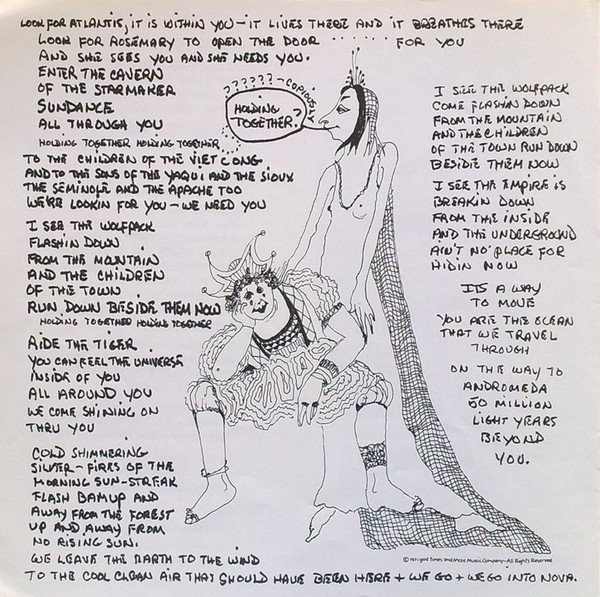 LOOK FOR ATLANTIS, IT IS WITHIN YOU - IT LIVES THERE AND IT BREATHES THERE
LOOK FOR ROSEMARY TO OPEN THE DOOR ...... FOR YOU
AND SHE SEES YOU AND SHE NEEDS YOU.
ENTER THE CAVERN
OF THE STARMAKER
SUNDANCE
ALL THROUGH YOU
HOLDING TOGETHER HOLDING TOGETHER
TO THE CHILDREN OF THE VIET CONG
AND TO THE SONS OF THE YAQUI AND THE SIOUX
THE SEMINOLE AND THE APACHE TOO
WE'RE LOOKIN FOR YOU - WE NEED YOU
I SEE THE WOLFPACK
FLASHIN DOWN
FROM THE MOUNTAIN
AND THE CHILDREN
OF THE TOWN
RUN DOWN BESIDE THEM NOW
HOLDING TOGETHER HOLDING TOGETHER
RIDE THE TIGER
YOU CAN FEEL THE UNIVERSE
INSIDE OF YOU
ALL AROUND YOU
WE COME SHINING ON
THRU YOU
COLD SHIMMERING
SILVER - FIRES OF THE
MORNING SUN - STREAK
FLASH BAMUP AND
AWAY FROM THE FOREST
UP AND AWAY FROM
NO RISING SUN.
WE LEAVE THE EARTH TO THE WIND
TO THE COOL CLEAN AIR THAT SHOULD HAVE BEEN HERE + WE GO + WE GO INTO NOVA.
?????? - COPIOUSLY
HOLDING
TOGETHER?
I SEE THE WOLFPACK
COME FLASHIN DOWN
FROM THE MOUNTAIN
AND THE CHILDREN
OF THE TOWN RUN DOWN
BESIDE THEM NOW
I SEE THE EMPIRE IS
BREAKIN DOWN
FROM THE INSIDE
AND THE UNDERGROUND
AIN'T NO PLACE FOR
HIDIN NOW
ITS A WAY
TO MOVE
YOU ARE THE OCEAN
THAT WE TRAVEL
THROUGH
ON THE WAY TO
ANDROMEDA
50 MILLION
LIGHT YEARS
BEYOND
YOU.
© 1971 God Tunes and Mole Music Company - All Rights Reserved